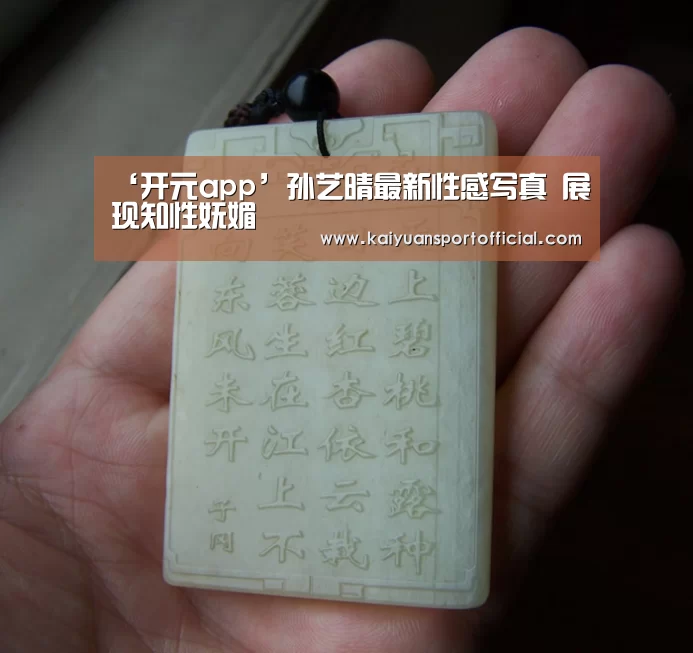 ‘开元app’孙艺晴最新性感写真 展
现知性妩媚
www.kaiyuansportofficial.com
上碧桃和露种
边红杏依云栽
芙蓉生在江上不
向东风未开
子冈